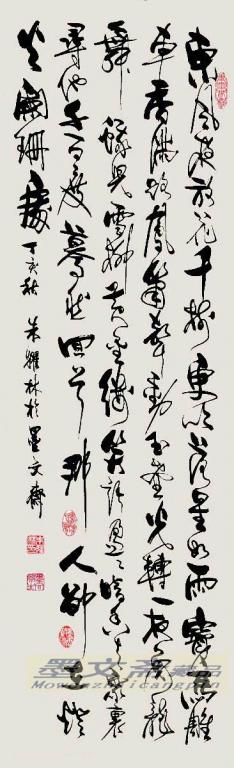 東風夜放花千樹更吹落星如雨寶馬雕
車香滿路鳳簫聲動玉壺光轉一夜魚龍
舞蛾兒雪柳黃金縷笑語盈々暗香去衆裏
尋他千百度驀然回首那人卻在燈
火闌珊處 丁亥秋 朱耀林於墨文齋
墨文斋藏品
Mowenzhaicangpin